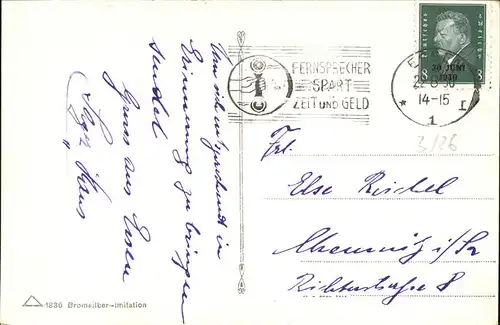 Um sich entsprechend in
Erinnerung zu bringen
sendet
Gruss aus Essen
Hans
1836 Bromsilber-Imitation
FERNSPRECHER
SPART
ZEIT UND GELD
14-15
1
Deutsches Reich
30. JUNI
1930
8
8
3/26
Frl.
Else Reichel
Chemnitz i/Sa
Richterstraße 8